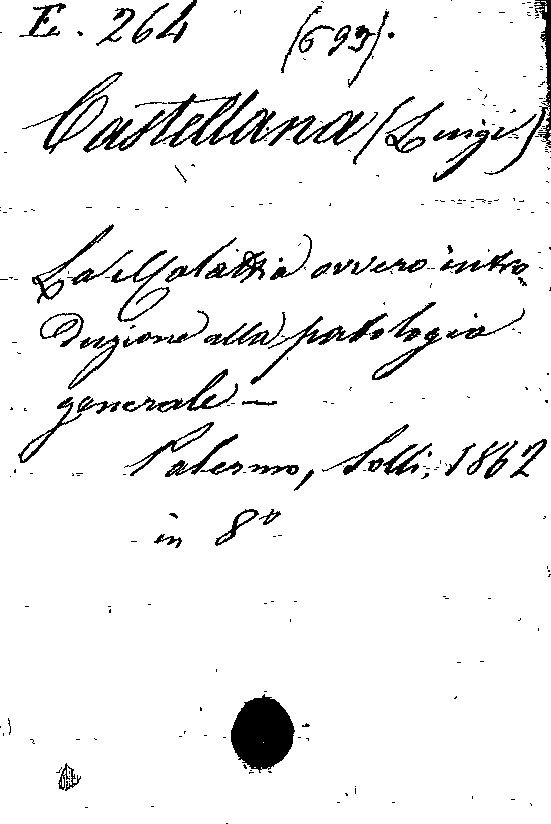 E. 264 (699).
Castellana (Luigi)
La Malattia ovvero intro
duzione alla patologia
generale -
Palermo, Solli, 1862
in 8º